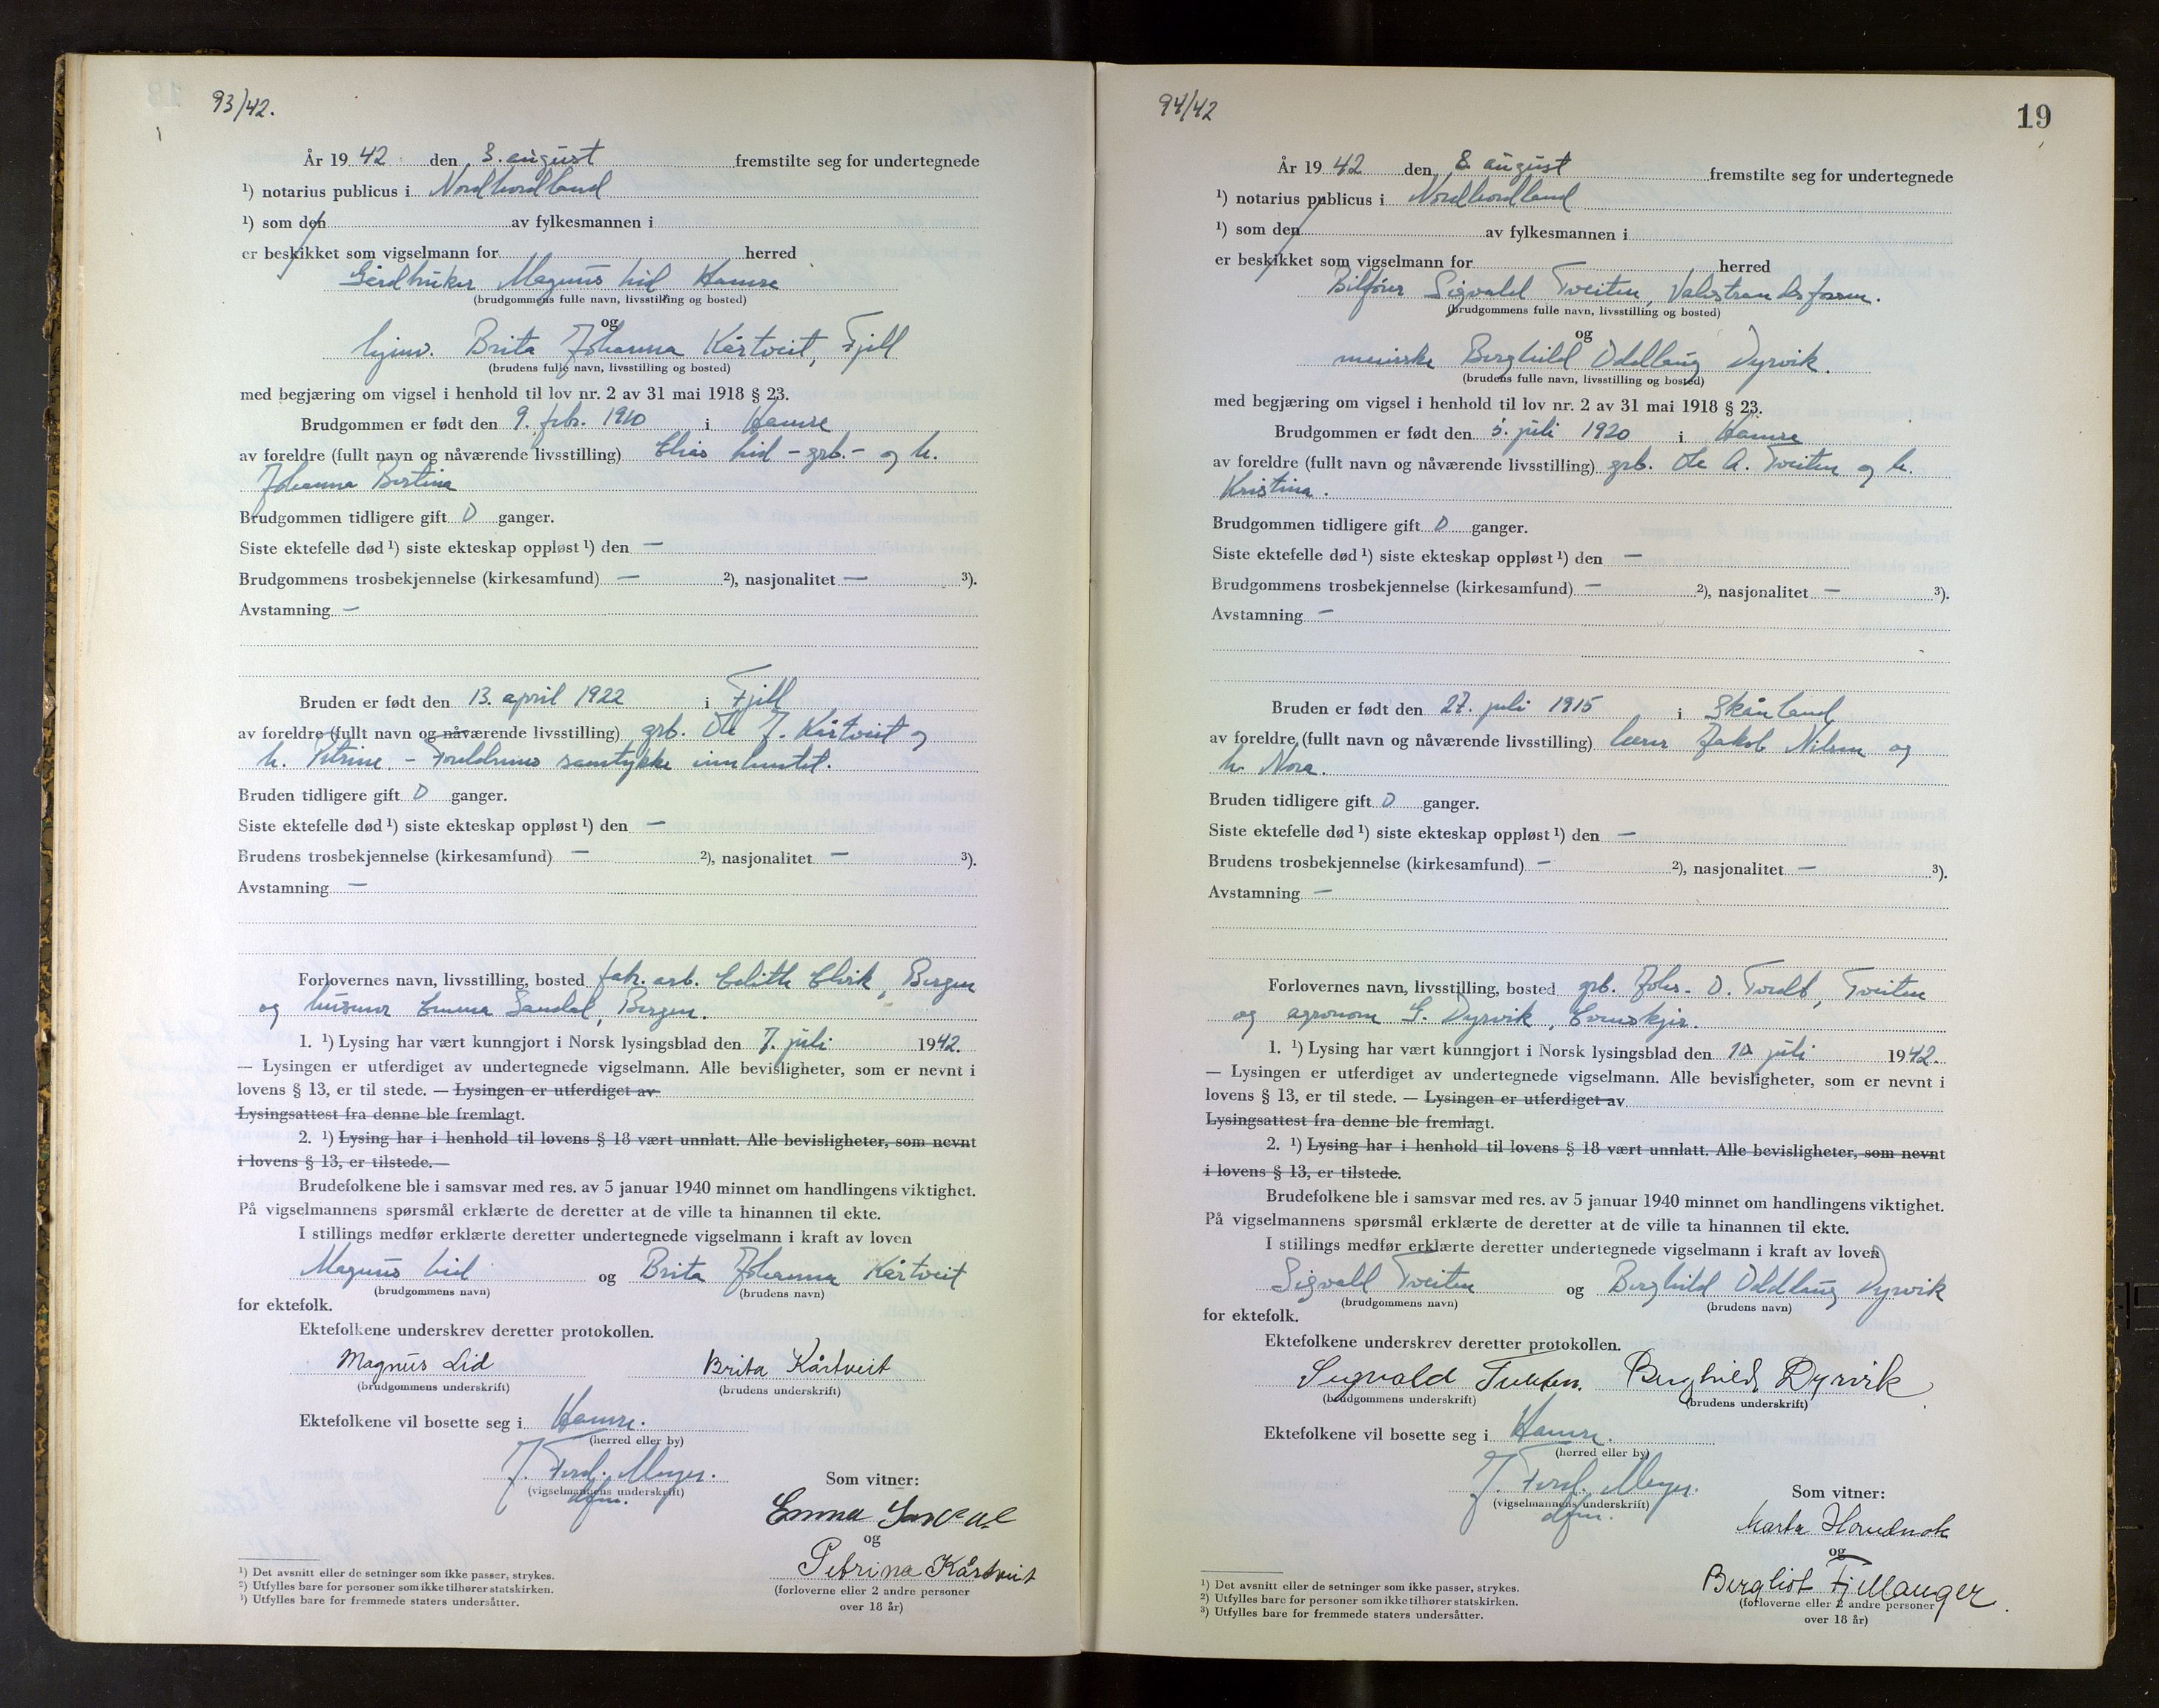 93/42.
År 1942 den 3. august fremstilte seg for undertegnede
¹) notarius publicus i Nordhordland
¹) som den av fylkesmannen i
er beskikket som vigselmann for herred
Gårdbruker Magnus Lid Hamre
(brudgommens fulle navn, livsstilling og bosted)
og
hjmv. Brita Johanna Kårtveit, Fjell
(brudens fulle navn, livsstilling og bosted)
med begjæring om vigsel i henhold til lov nr. 2 av 31 mai 1918 § 23.
Brudgommen er født den 9. febr. 1910 i Hamre
av foreldre (fullt navn og nåværende livsstilling) Elias Lid - grb. - og h.
Johanna Bertina
Brudgommen tidligere gift 0 ganger.
Siste ektefelle død ¹) siste ekteskap oppløst ¹) den —
Brudgommens trosbekjennelse (kirkesamfund) — ²), nasjonalitet — ³).
Avstamning —
Bruden er født den 13. april 1922 i Fjell
av foreldre (fullt navn og nåværende livsstilling) grb. Ole J. Kårtveit og
h. Petrine. - Foreldrenes samtykke innhentet.
Bruden tidligere gift 0 ganger.
Siste ektefelle død ¹) siste ekteskap oppløst ¹) den —
Brudens trosbekjennelse (kirkesamfund) — ²), nasjonalitet — ³).
Avstamning —
Forlovernes navn, livsstilling, bosted fabr. arb. Edith Elvik, Bergen
og husmor Emma Sandal, Bergen.
1. ¹) Lysing har vært kunngjort i Norsk lysingsblad den 7. juli 1942.
— Lysingen er utferdiget av undertegnede vigselmann. Alle bevisligheter, som er nevnt i
lovens § 13, er til stede. — Lysingen er utferdiget av
Lysingsattest fra denne ble fremlagt.
2. ¹) Lysing har i henhold til lovens § 18 vært unnlatt. Alle bevisligheter, som nevnt
i lovens § 13, er tilstede.
Brudefolkene ble i samsvar med res. av 5 januar 1940 minnet om handlingens viktighet.
På vigselmannens spørsmål erklærte de deretter at de ville ta hinannen til ekte.
I stillings medfør erklærte deretter undertegnede vigselmann i kraft av loven
Magnus Lid og Brita Johanna Kårtveit
(brudgommens navn) (brudens navn)
for ektefolk.
Ektefolkene underskrev deretter protokollen.
Magnus Lid Brita Kårtveit
(brudgommens underskrift) (brudens underskrift)
Ektefolkene vil bosette seg i Hamre.
(herred eller by)
J. Ferd. Meyer.
(vigselmannens underskrift)
dfm.
Som vitner:
Emma Sandal
og
Petrina Kårtveit
(forloverne eller 2 andre personer
over 18 år)
¹) Det avsnitt eller de setninger som ikke passer, strykes.
²) Utfylles bare for personer som ikke tilhører statskirken.
³) Utfylles bare for fremmede staters undersåtter.
94/42
19
År 1942 den 8. august fremstilte seg for undertegnede
¹) notarius publicus i Nordhordland
¹) som den av fylkesmannen i
er beskikket som vigselmann for herred
Bilfører Sigvald Tveiten, Valestrandsfossen.
(brudgommens fulle navn, livsstilling og bosted)
og
meierske Berghild Oddlaug Dyrvik.
(brudens fulle navn, livsstilling og bosted)
med begjæring om vigsel i henhold til lov nr. 2 av 31 mai 1918 § 23.
Brudgommen er født den 5. juli 1920 i Hamre
av foreldre (fullt navn og nåværende livsstilling) grb. Ole A. Tveiten og h.
Kristina.
Brudgommen tidligere gift 0 ganger.
Siste ektefelle død ¹) siste ekteskap oppløst ¹) den —
Brudgommens trosbekjennelse (kirkesamfund) — ²), nasjonalitet — ³).
Avstamning —
Bruden er født den 27. juli 1915 i Skånland
av foreldre (fullt navn og nåværende livsstilling) lærer Jakob Nilsen og
h. Nora.
Bruden tidligere gift 0 ganger.
Siste ektefelle død ¹) siste ekteskap oppløst ¹) den —
Brudens trosbekjennelse (kirkesamfund) — ²), nasjonalitet — ³).
Avstamning —
Forlovernes navn, livsstilling, bosted grb. Johs. O. Tveiten
og agronom G. Dyrvik, Evenskjer.
1. ¹) Lysing har vært kunngjort i Norsk lysingsblad den 10 juli 1942.
— Lysingen er utferdiget av undertegnede vigselmann. Alle bevisligheter, som er nevnt i
lovens § 13, er til stede. — Lysingen er utferdiget av
Lysingsattest fra denne ble fremlagt.
2. ¹) Lysing har i henhold til lovens § 18 vært unnlatt. Alle bevisligheter, som nevnt
i lovens § 13, er tilstede.
Brudefolkene ble i samsvar med res. av 5 januar 1940 minnet om handlingens viktighet.
På vigselmannens spørsmål erklærte de deretter at de ville ta hinannen til ekte.
I stillings medfør erklærte deretter undertegnede vigselmann i kraft av loven
Sigvald Tveiten og Berghild Oddlaug Dyrvik
(brudgommens navn) (brudens navn)
for ektefolk.
Ektefolkene underskrev deretter protokollen.
Sigvald Tveiten. Berghild Dyrvik
(brudgommens underskrift) (brudens underskrift)
Ektefolkene vil bosette seg i Hamre.
(herred eller by)
J. Ferd. Meyer.
(vigselmannens underskrift)
dfm.
Som vitner:
Marta
og
Bergliot Fjellanger
(forloverne eller 2 andre personer
over 18 år)
¹) Det avsnitt eller de setninger som ikke passer, strykes.
²) Utfylles bare for personer som ikke tilhører statskirken.
³) Utfylles bare for fremmede staters undersåtter.